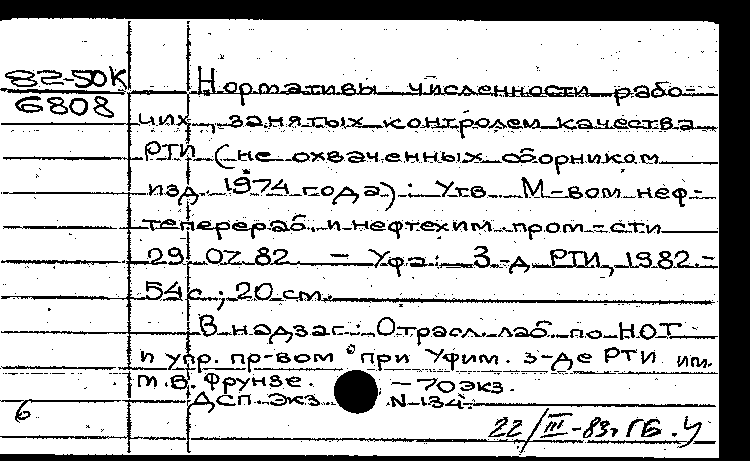 82-50К
6808
Нормативы численности рабо-
чих, занятых контролем качества
РТИ (не охваченных сборником
изд. 1974 года): Утв. М-вом неф-
теперераб. и нефтехим. пром-сти
29.07.82. - Уфа: З-д РТИ, 1982.-
54с.; 20 см.
В надзаг.: Отрасл. лаб. по НОТ
и упр. пр-вом при Уфим. з-де РТИ им.
М.В. Фрунзе. - 70экз.
ДСП. Экз. N 134.
6
22/III-83г. ГБ. У